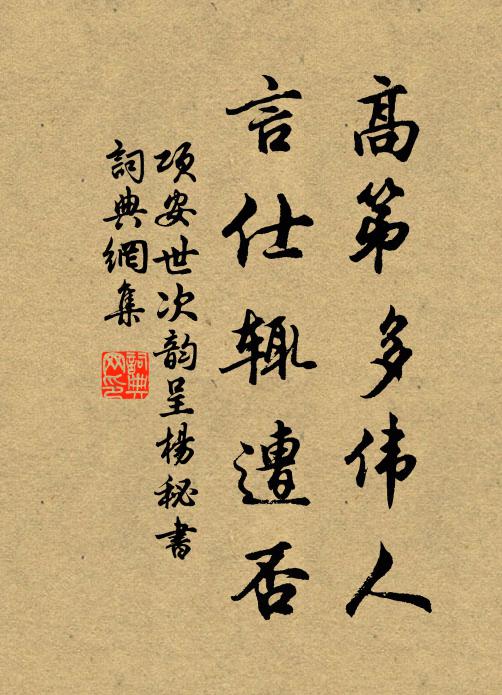 高第多伟人
言仕辄遭否
项安世次韵呈楊秘書
詞典網集
詞典网印